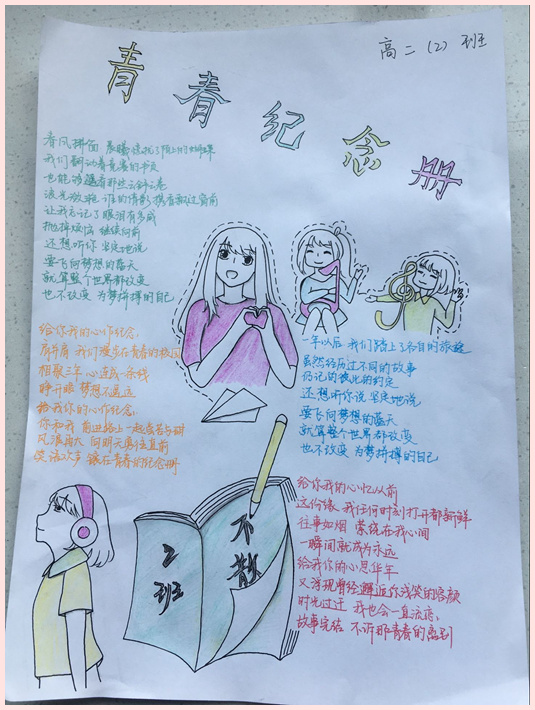 高二（2）班
青春纪念册
春风拂面 晨曦惊扰了陌上的蝴蝶
我们翻动着竞赛的书页
也能够遥看那些云舒云卷
波光潋滟 谁的倩影携香飘过窗前
让我忘记了眼泪有多咸
抛掉烦恼 继续向前
还想听你 坚定地说
要飞向梦想的蓝天
就算整个世界都改变
也不改变 为梦拼搏的自己
给你我的心作纪念，
肩并肩 我们漫步在青春的校园
相聚三年 心连成一条线
睁开眼 梦想不遥远
给我你的心作纪念，
你和我 前进路上一起度苦与甜
风浪再大 向明天勇往直前
笑语欢声 镶在青春的纪念册
一年以后 我们踏上了各自的旅途
虽然经历过不同的故事
仍记的彼此的约定
还想听你说 坚定地说
要飞向梦想的蓝天
就算整个世界都改变
也不改变 为梦拼搏的自己
给你我的心忆从前
这份缘 我任何时刻打开都新鲜
往事如烟 萦绕在我心间
一瞬间就成为永远
给我你的心思华年
又浮现曾经邂逅你浅笑的容颜
时光过迁 我也会一直流恋，
故事完结 不诉那青春的离别
2班
不散